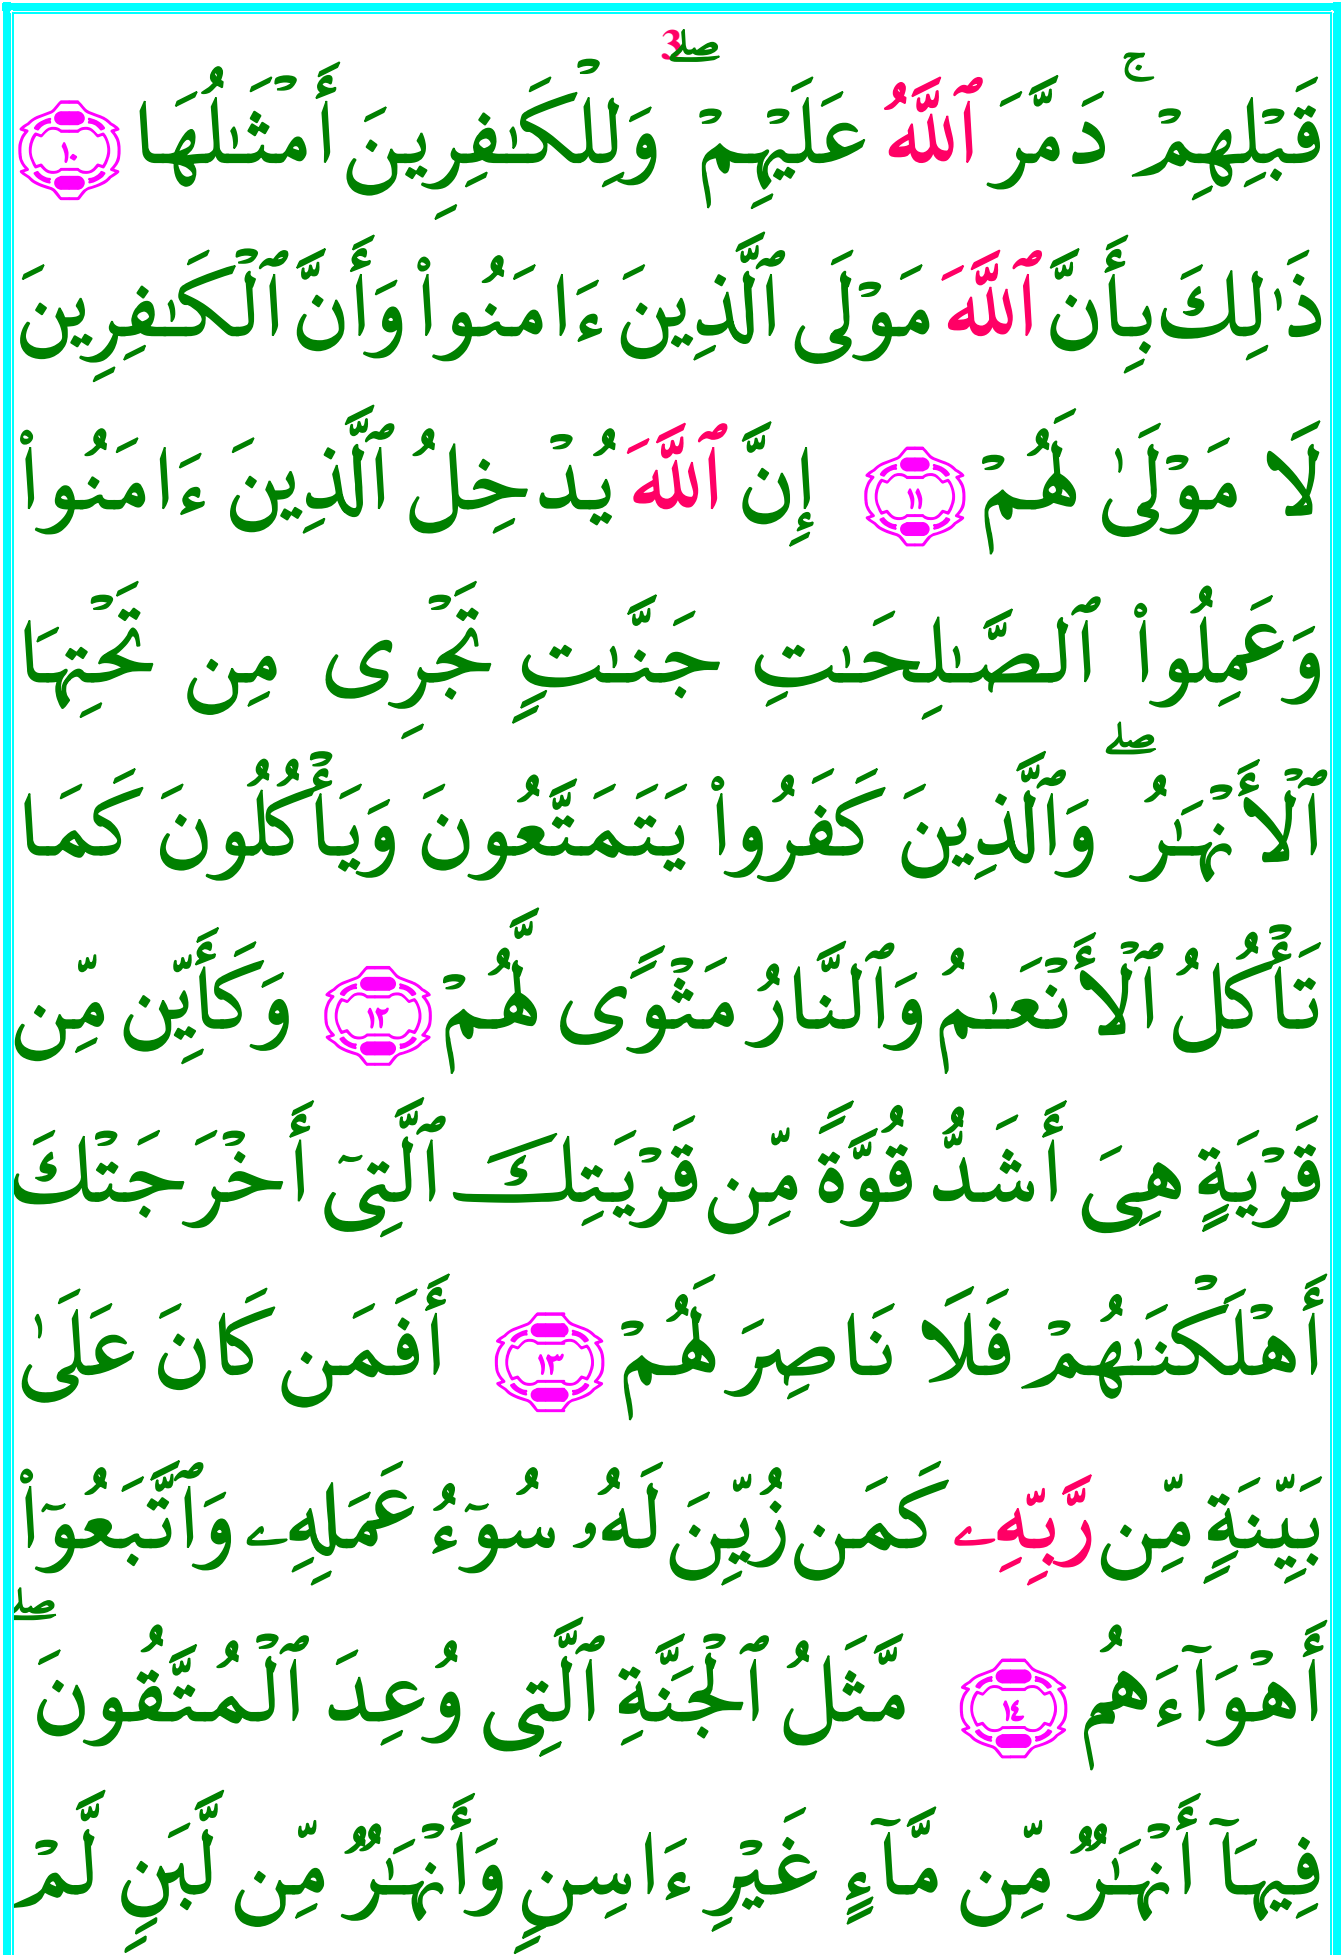 3
قَبْلِهِمْ ۚ دَمَّرَ ٱللَّهُ عَلَيْهِمْ ۖ وَلِلْكَـٰفِرِينَ أَمْثَـٰلُهَا ١٠
ذَٰلِكَ بِأَنَّ ٱللَّهَ مَوْلَى ٱلَّذِينَ ءَامَنُوا۟ وَأَنَّ ٱلْكَـٰفِرِينَ
لَا مَوْلَىٰ لَهُمْ ١١ إِنَّ ٱللَّهَ يُدْخِلُ ٱلَّذِينَ ءَامَنُوا۟
وَعَمِلُوا۟ ٱلصَّـٰلِحَـٰتِ جَنَّـٰتٍ تَجْرِى مِن تَحْتِهَا
ٱلْأَنْهَـٰرُ ۖ وَٱلَّذِينَ كَفَرُوا۟ يَتَمَتَّعُونَ وَيَأْكُلُونَ كَمَا
تَأْكُلُ ٱلْأَنْعَـٰمُ وَٱلنَّارُ مَثْوًى لَّهُمْ ١٢ وَكَأَيِّن مِّن
قَرْيَةٍ هِىَ أَشَدُّ قُوَّةً مِّن قَرْيَتِكَ ٱلَّتِىٓ أَخْرَجَتْكَ
أَهْلَكْنَـٰهُمْ فَلَا نَاصِرَ لَهُمْ ١٣ أَفَمَن كَانَ عَلَىٰ
بَيِّنَةٍ مِّن رَّبِّهِۦ كَمَن زُيِّنَ لَهُۥ سُوٓءُ عَمَلِهِۦ وَٱتَّبَعُوٓا۟
أَهْوَآءَهُم ١٤ مَّثَلُ ٱلْجَنَّةِ ٱلَّتِى وُعِدَ ٱلْمُتَّقُونَ ۖ
فِيهَآ أَنْهَـٰرٌ مِّن مَّآءٍ غَيْرِ ءَاسِنٍ وَأَنْهَـٰرٌ مِّن لَّبَنٍ لَّمْ